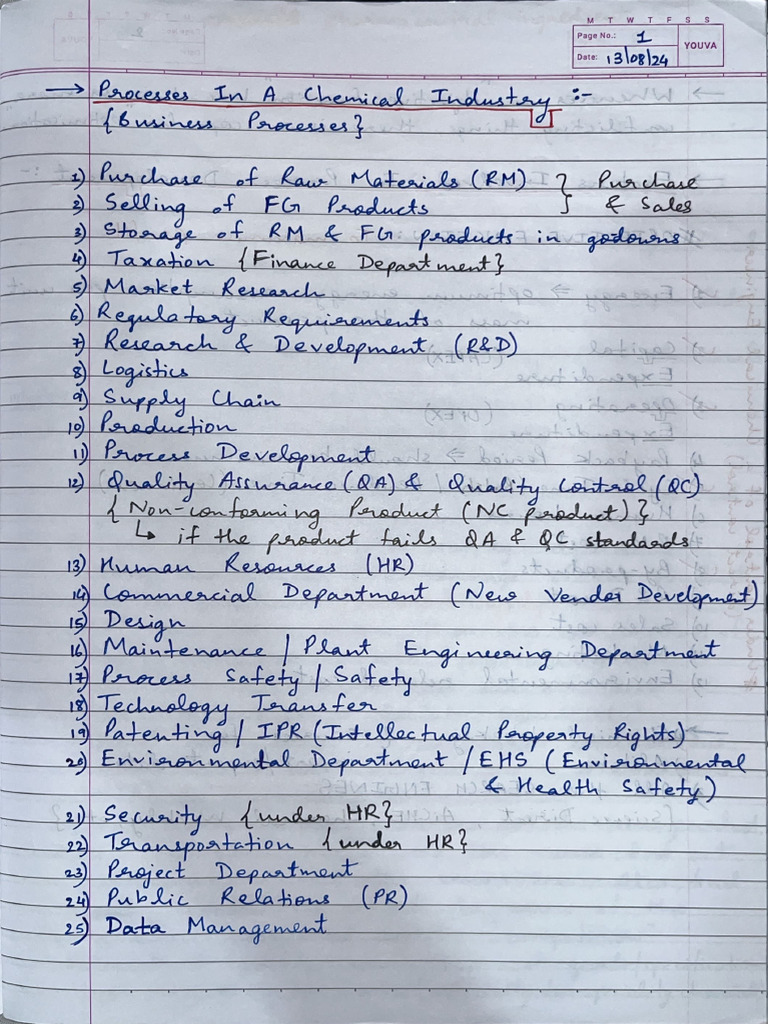 M T W T F S S
Page No.: 1
YOUVA
Date: 13/08/24
→ Processes In A Chemical Industry :-
{Business Processes}
1) Purchase of Raw Materials (RM) } Purchase
2) Selling of FG Products } & Sales
3) Storage of RM & FG products in godowns
4) Taxation {Finance Department}
5) Market Research
6) Regulatory Requirements
7) Research & Development (R&D)
8) Logistics
9) Supply Chain
10) Production
11) Process Development
12) Quality Assurance (QA) & Quality Control (QC)
{Non-conforming Product (NC product)}
↳ if the product fails QA & QC standards
13) Human Resources (HR)
14) Commercial Department (New Vendor Development)
15) Design
16) Maintenance / Plant Engineering Department
17) Process Safety / Safety
18) Technology Transfer
19) Patenting / IPR (Intellectual Property Rights)
20) Environmental Department / EHS (Environmental
& Health Safety)
21) Security {under HR}
22) Transportation {under HR}
23) Project Department
24) Public Relations (PR)
25) Data Management